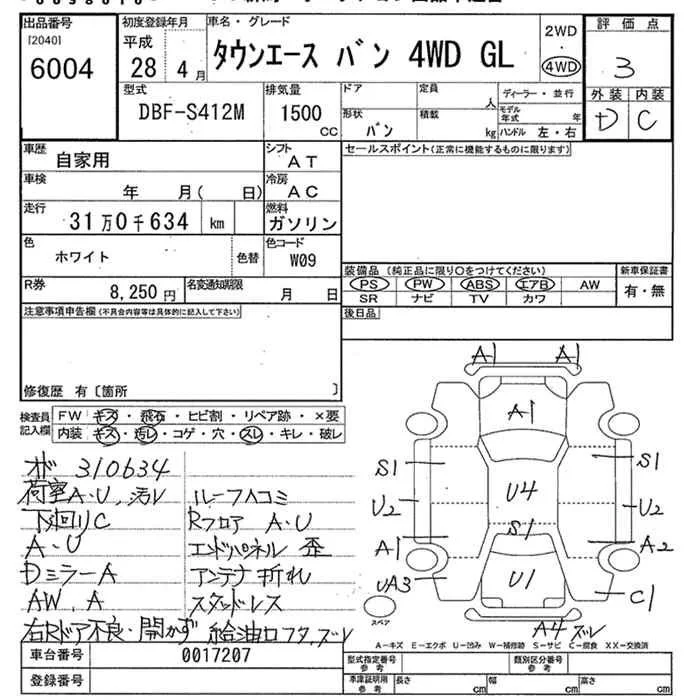 出品番号
[2040]
6004
初度登録年月
平成
28年 4月
車名・グレード
タウンエース バン 4WD GL
2WD
・
4WD
評価点
3
外装 内装
D C
型式
DBF-S412M
排気量
1500
CC
ドア
形状
バン
定員
人
積載
kg
ディーラー・並行
モデル年式 年
ハンドル 左・右
車歴
自家用
シフト
AT
セールスポイント(正常に機能するものに限ります)
車検
年 月( 日)
冷房
AC
走行
31万0千634 km
燃料
ガソリン
色
ホワイト
色替
色コード
W09
R券
8,250円
名変通知期限
月 日
装備品 (純正品に限り○をつけてください)
新車保証書
PS PW ABS エアB AW
有・無
SR ナビ TV カワ
後日品
注意事項申告欄(不具合内容等は具体的に記入して下さい)
修復歴 有〔箇所 〕
検査員記入欄
FW キズ・飛石・ヒビ割・リペア跡・×要
内装 キズ・汚レ・コゲ・穴・スレ・キレ・破レ
310634
荷室A・U、汚レ ルーフハコミ
下廻りC Rフロア A・U
A・U エンドパネル 歪
Dミラー A アンテナ 折れ
AW、A スタッドレス
右Rドア不良・開かず 給油口フタ,ズレ
A1 A1
A1
S1 S1
U2 U4 U2
S1
A1 A2
UA3 U1 C1
スペア
A4 ズレ
A-キズ E-エクボ U-凹み W-補修跡 S-サビ C-腐食 XX-交換済
車台番号
0017207
登録番号
型式指定番号
参考
類別区分番号
参考
車庫証明用
参考
長さ cm 幅 cm 高さ cm